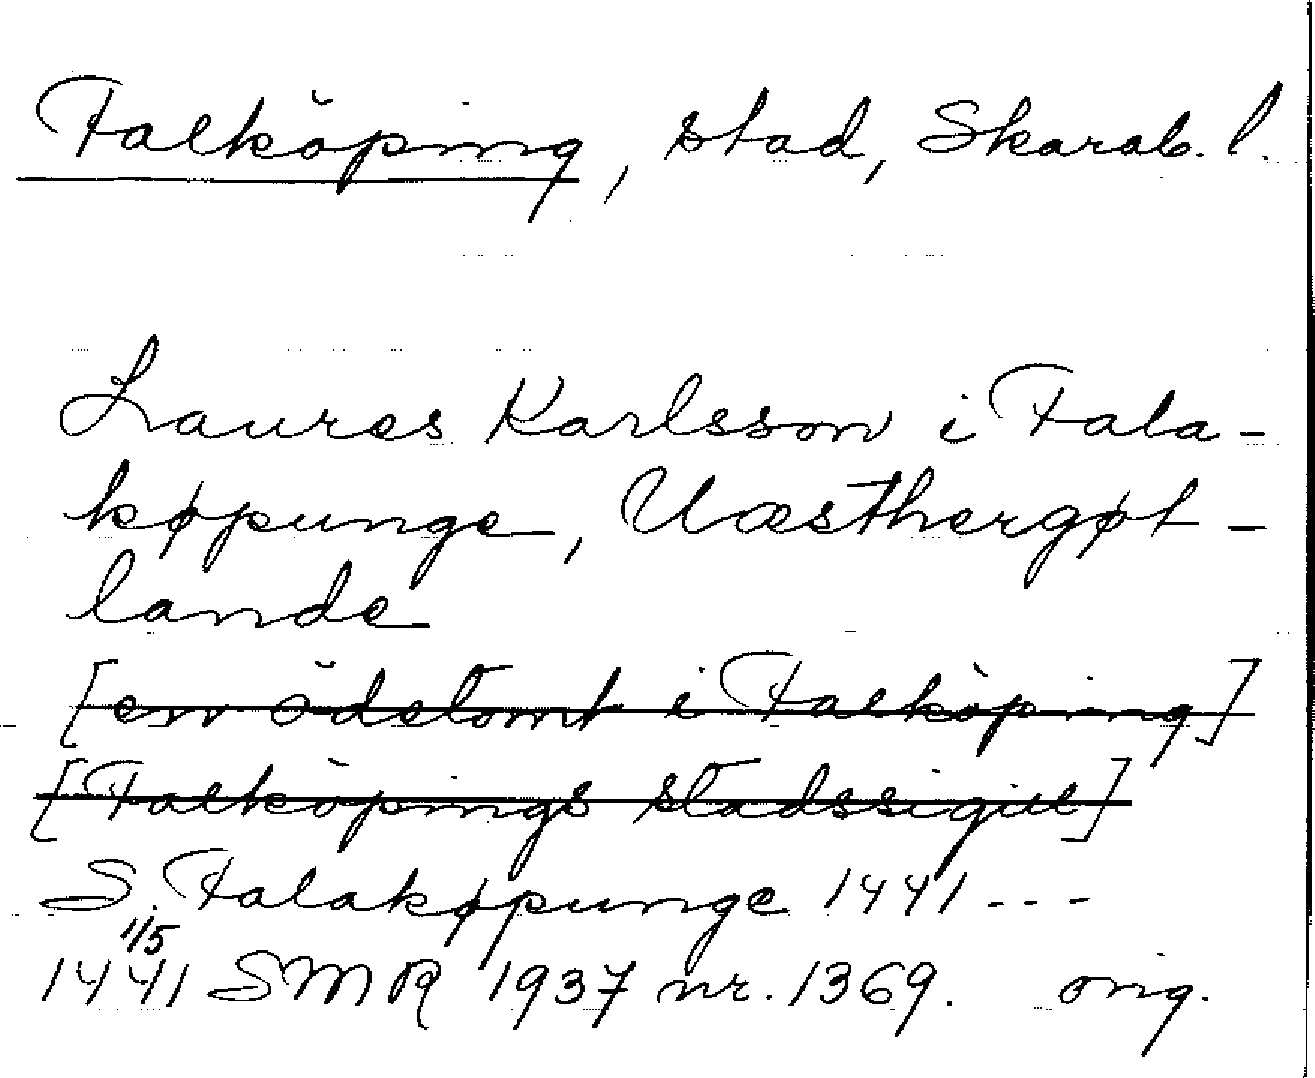 Falköping, stad, Skarab. l.
Laures Karlsson i Fala-
køpunge, Væsthergøt-
lande
[en ödetomt i Falköping]
[Falköpings stadssigill]
S. Falakøpunge 1441 ---
1/5
1441 SMR 1937 nr. 1369. orig.